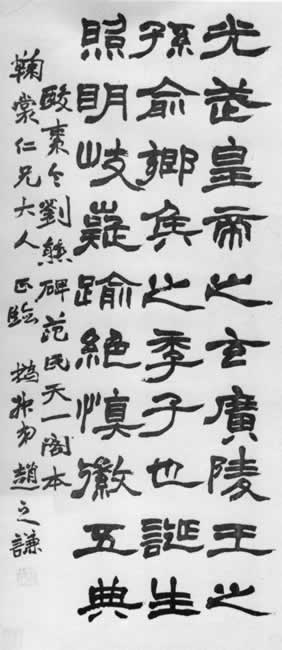 光武皇帝之玄廣陵王之
孫俞鄉矦之季子也誕生
照明岐嶷踰絕慎徽五典
酸棗令劉熊碑范氏天一閣本
鞠裳仁兄大人正臨 撝叔弟趙之謙